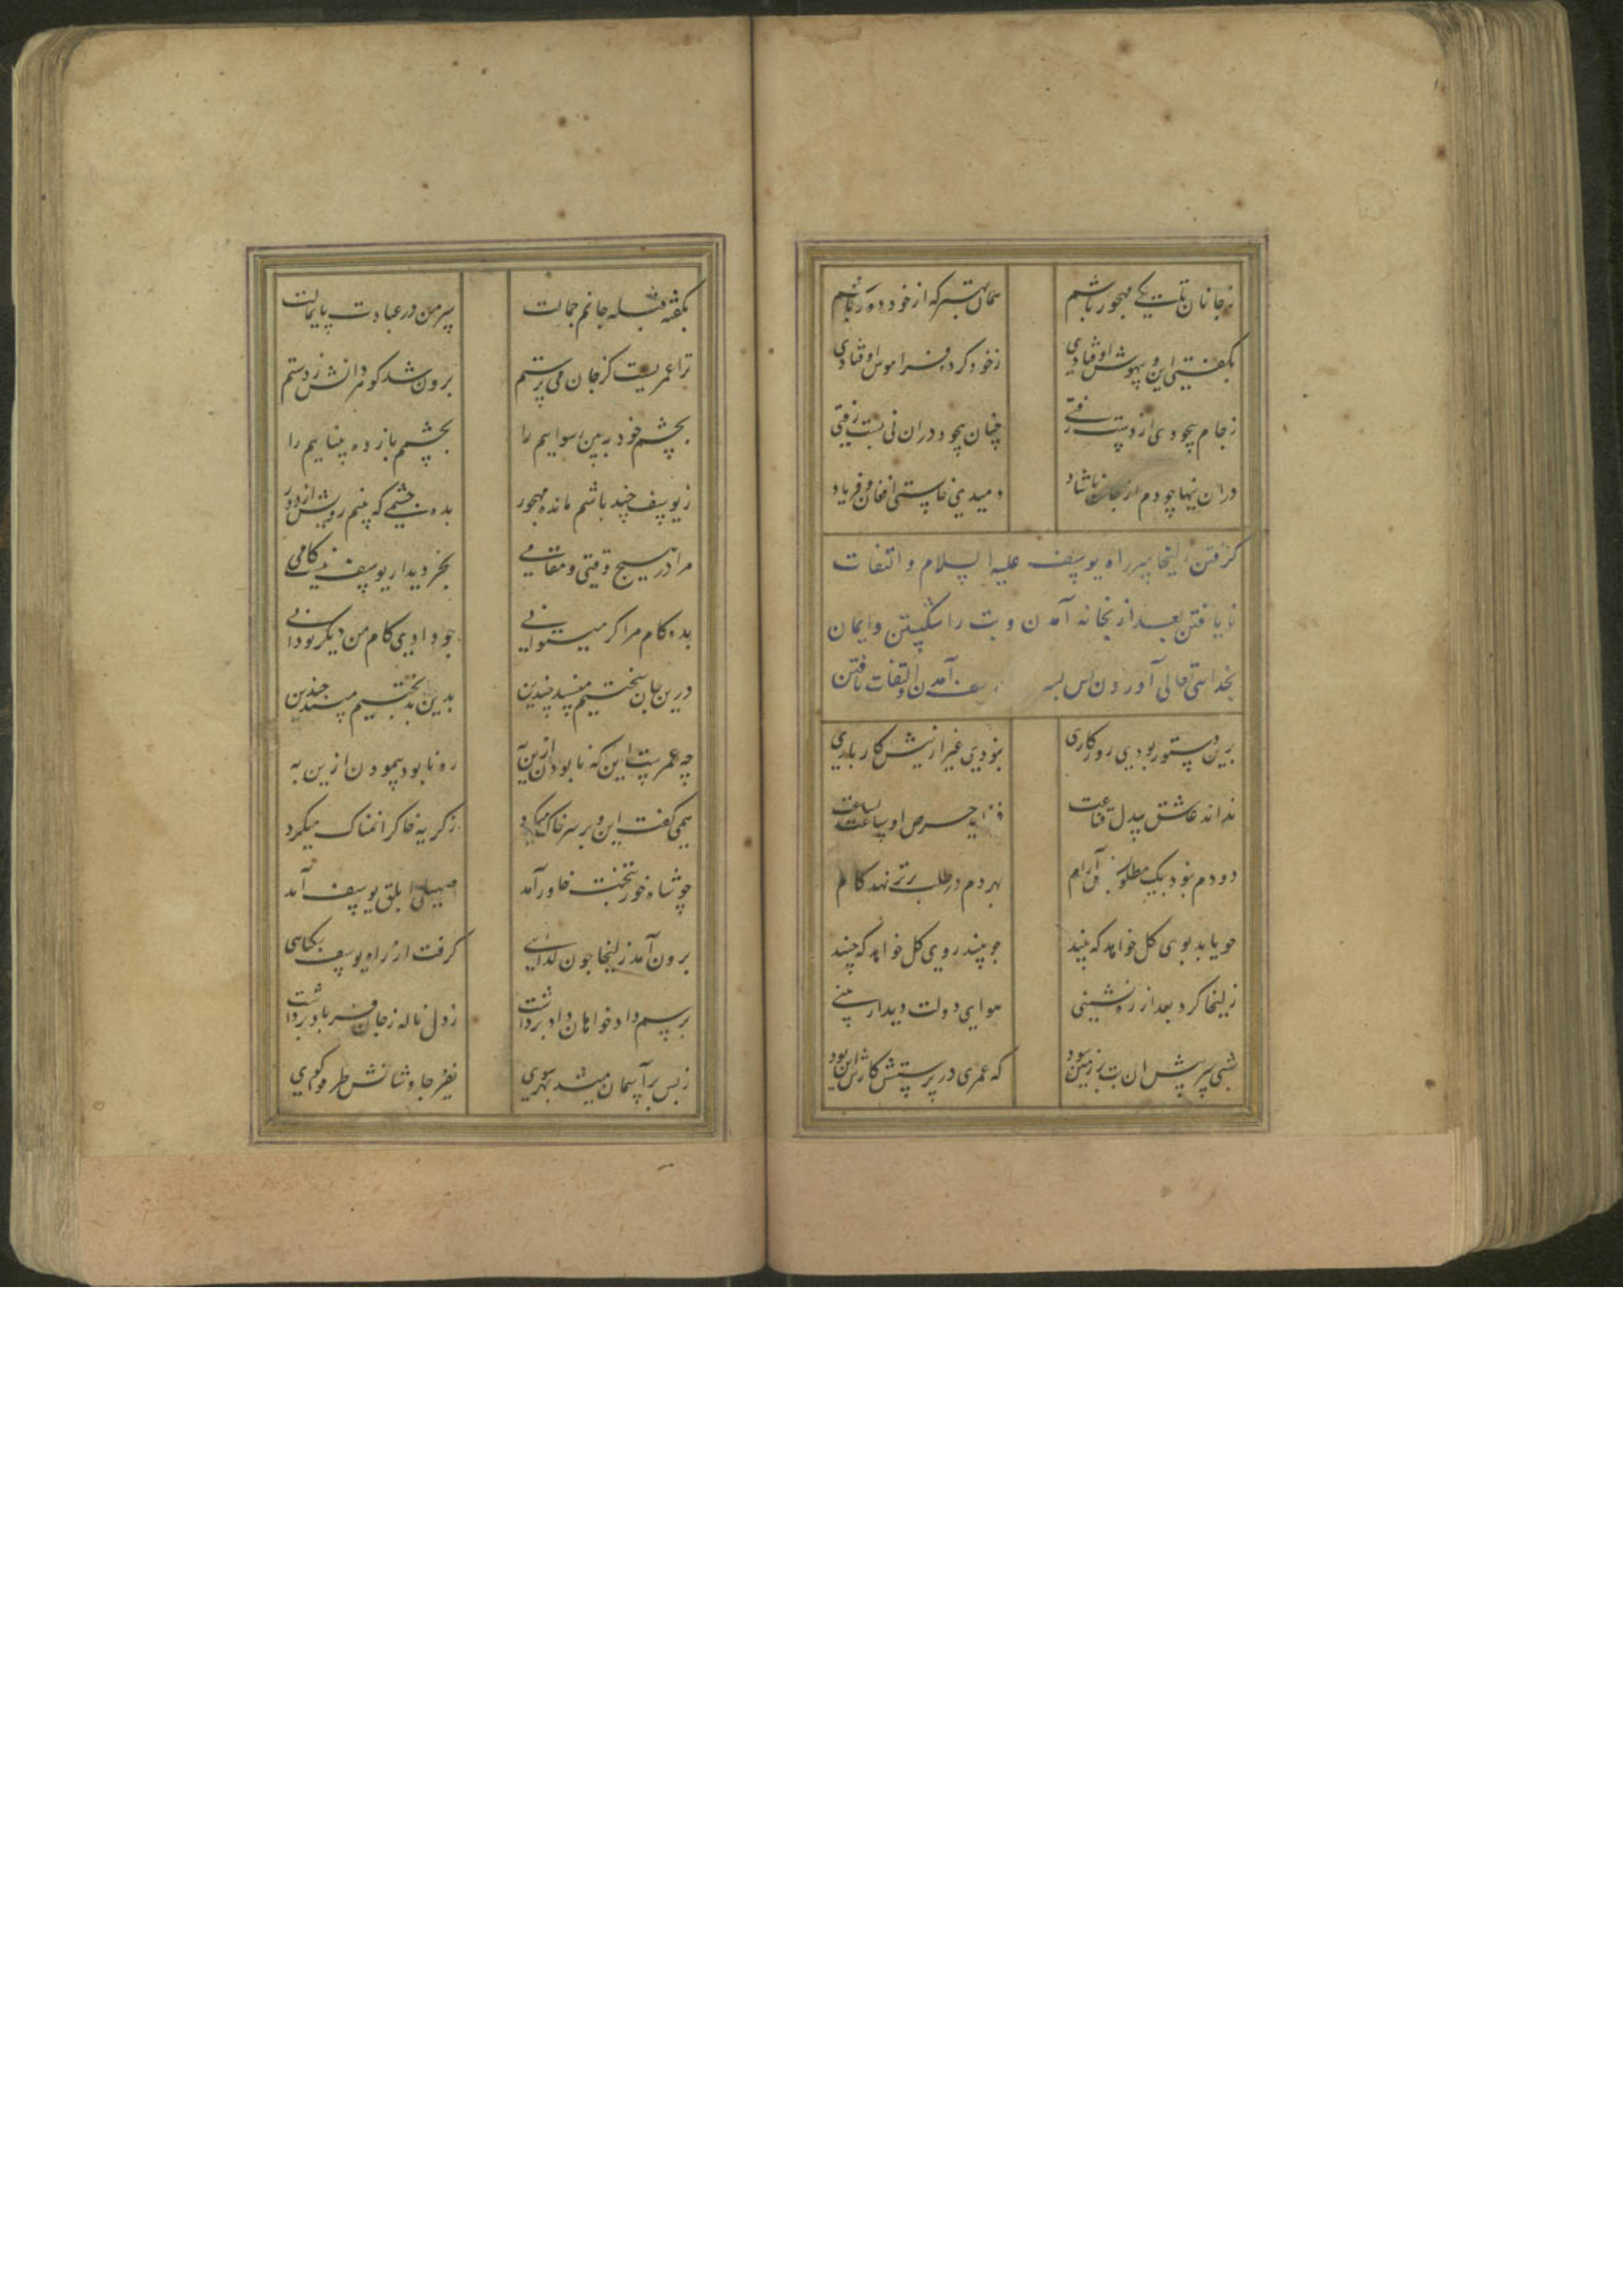 ز جانان تا بکی مهجور باشم همان بهتر که از خود دور باشم
بکفتی این و بیهوش اوفتادی ز خود کرده فراموش اوفتادی
ز جام بیخودی از دست رفتی چنان بیخود در آن نی بست رفتی
در آن نیها چو دم از جان ناشاد دمیدی خاستی افغان و فریاد
کرفتن زلیخا سر راه یوسف علیه السلام و التفات
نایافتن بعد از بخانه آمدن و بت را شکستن و ایمان
بخدایتعالی آوردن پس بسر آمدن و التفات یافتن
برین دستور بودی روزکاری نبودی غیر ازینش کار باری
نداند عاشق بیدل قناعت فزاید حرص او ساعت بساعت
دو دم نبود بیک مطلوبش آرام بهر دم در طلب برتر نهد کام
چو یابد بوی کل خواهد که بیند چو بیند روی کل خواهد که چیند
زلیخا کرد بعد از ره نشینی هوای دولت دیدار بینی
شبی سر پیش آن بت بر زمین سود که عمری در پرستش کارش این بود
بکفت ای قبله جانم جمالت سر من در عبادت پایمالت
ترا عمریست کز جان می پرستم برون شد کوهر دانش ز دستم
بچشم خود ببین رسواییم را بچشمم باز ده بیناییم را
ز یوسف چند باشم مانده مهجور بده چشمی که بینم رویش از دور
مرا در هیچ وقتی و مقامی بجز دیدار یوسف نیست کامی
بده کام مرا کر میتوانی چو دادی کام من دیکر تو دانی
درین جان سختیم مپسند چندین بدین بدبختیم مپسند چندین
چه عمرست این که نابودن ازین به ره نابود پیمودن ازین به
همی کفت این و بر سر خاک میکرد ز کریه خاک را نمناک میکرد
چو شاه خور بتخت خاور آمد صهیل ابلق یوسف آمد
برون آمد زلیخا چون کدایی کرفت از راه یوسف تنکنایی
برسم دادخواهان داد برداشت ز دل ناله ز جان فریاد برداشت
ز بس بر آسمان میشد ز هر سوی نفیر چاوشانش طرقوا کوی